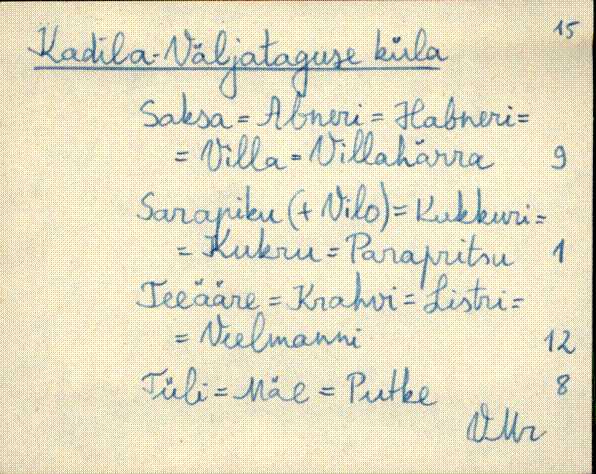 15
Kadila-Väljataguse küla
Saksa = Abneri = Habneri =
= Villa = Villahärra 9
Sarapiku (+ Vilo) = Kukkuri =
= Kukru = Parapritsu 1
Teeääre = Krahvi = Listri =
= Veelmanni 12
Tüli = Mäe = Putke 8
VMr